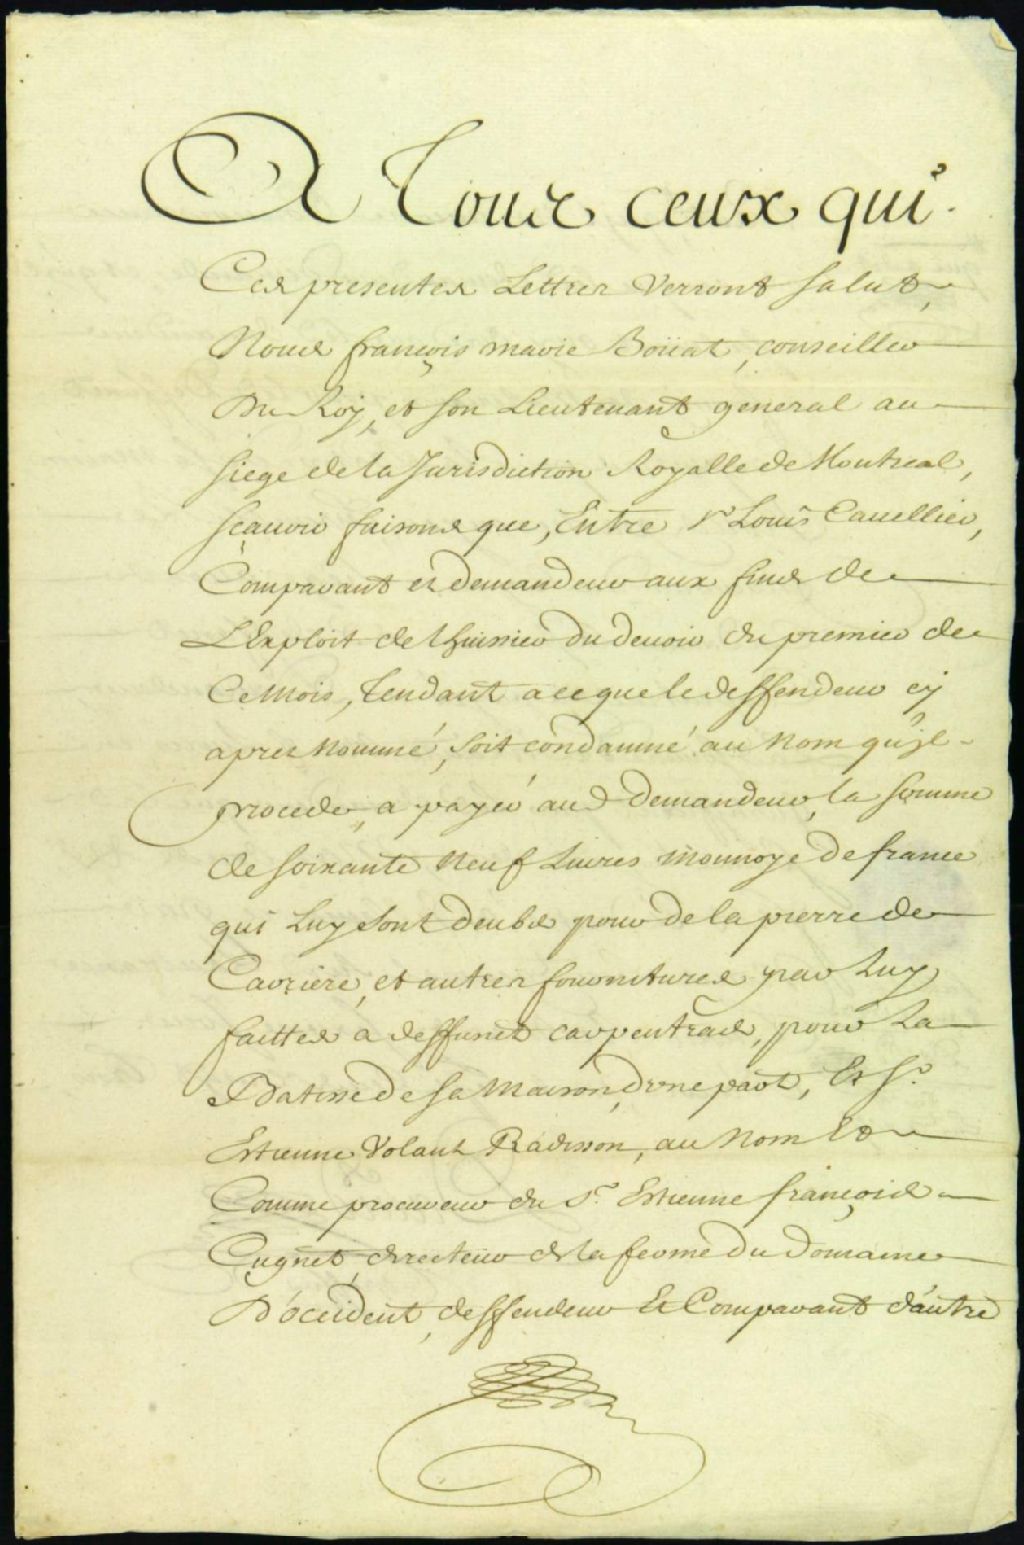 A Tous ceux qui
Ces presentes Lettres Verront salut,
Nous françois marie Boüat, conseiller
Du Roy, et son Lieutenant general au
siege de la Jurisdiction Royalle de Montreal,
sçauoir faisons que, Entre Sr Louis Cauellier,
Comparant et demandeur aux fins de
L'Exploit de thuissier du deuoir du premier de
Ce Mois, Tendant a ce que le deffendeur cy
apres Nommé, soit condamné au Nom qu'jl
procede, a payer aud demandeur, la somme
de soixante Neuf Liures monnoye de france
qui Luy sont deubs pour de la pierre de
Carriere, et autres fournitures par Luy
faittes a deffunct carpentras, pour La
Batisse de sa Maison, d'vne part, Et Sr
Estienne Volant Radisson, au Nom Et
Comme procureur du Sr Estienne françois
Cugnet, directeur de la ferme du Domaine
D'occident, deffendeur Et Comparant d'autre